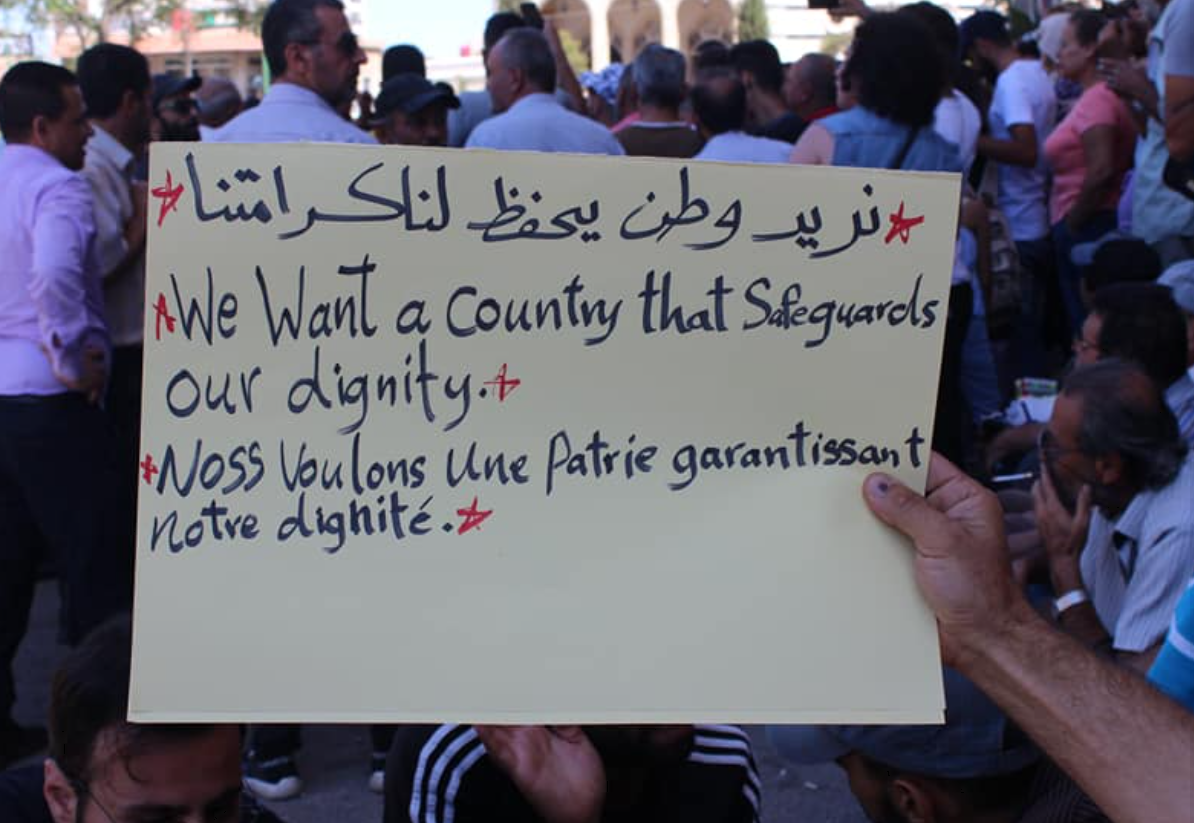 نريد وطن يحفظ لنا كرامتنا
We Want a Country that Safeguards
our dignity.
Noss Voulons Une Patrie garantissant
notre dignité.